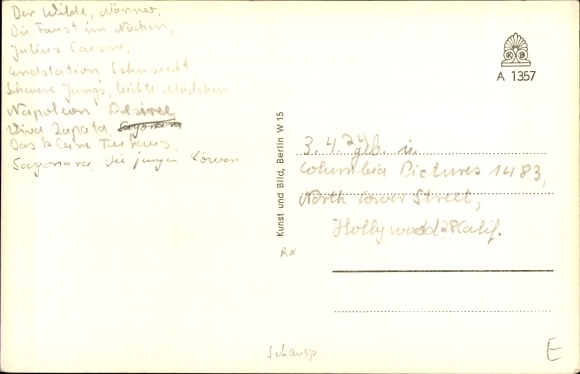 Der Wilde, Männer,
Die Faust im Nacken,
Julius Caesar,
Endstation Sehnsucht,
Schwere Jungs, leichte Mädchen,
Napoleon Desiree
Viva Zapata, Sayonara
Das kleine Teehaus,
Sayonara, die jungen Löwen
K B
A 1357
Kunst und Bild, Berlin W 15
3. 4. 24 geb. in
Columbia Pictures 1483,
North Gower Street,
Hollywood 28 Calif.
Schausp.
E